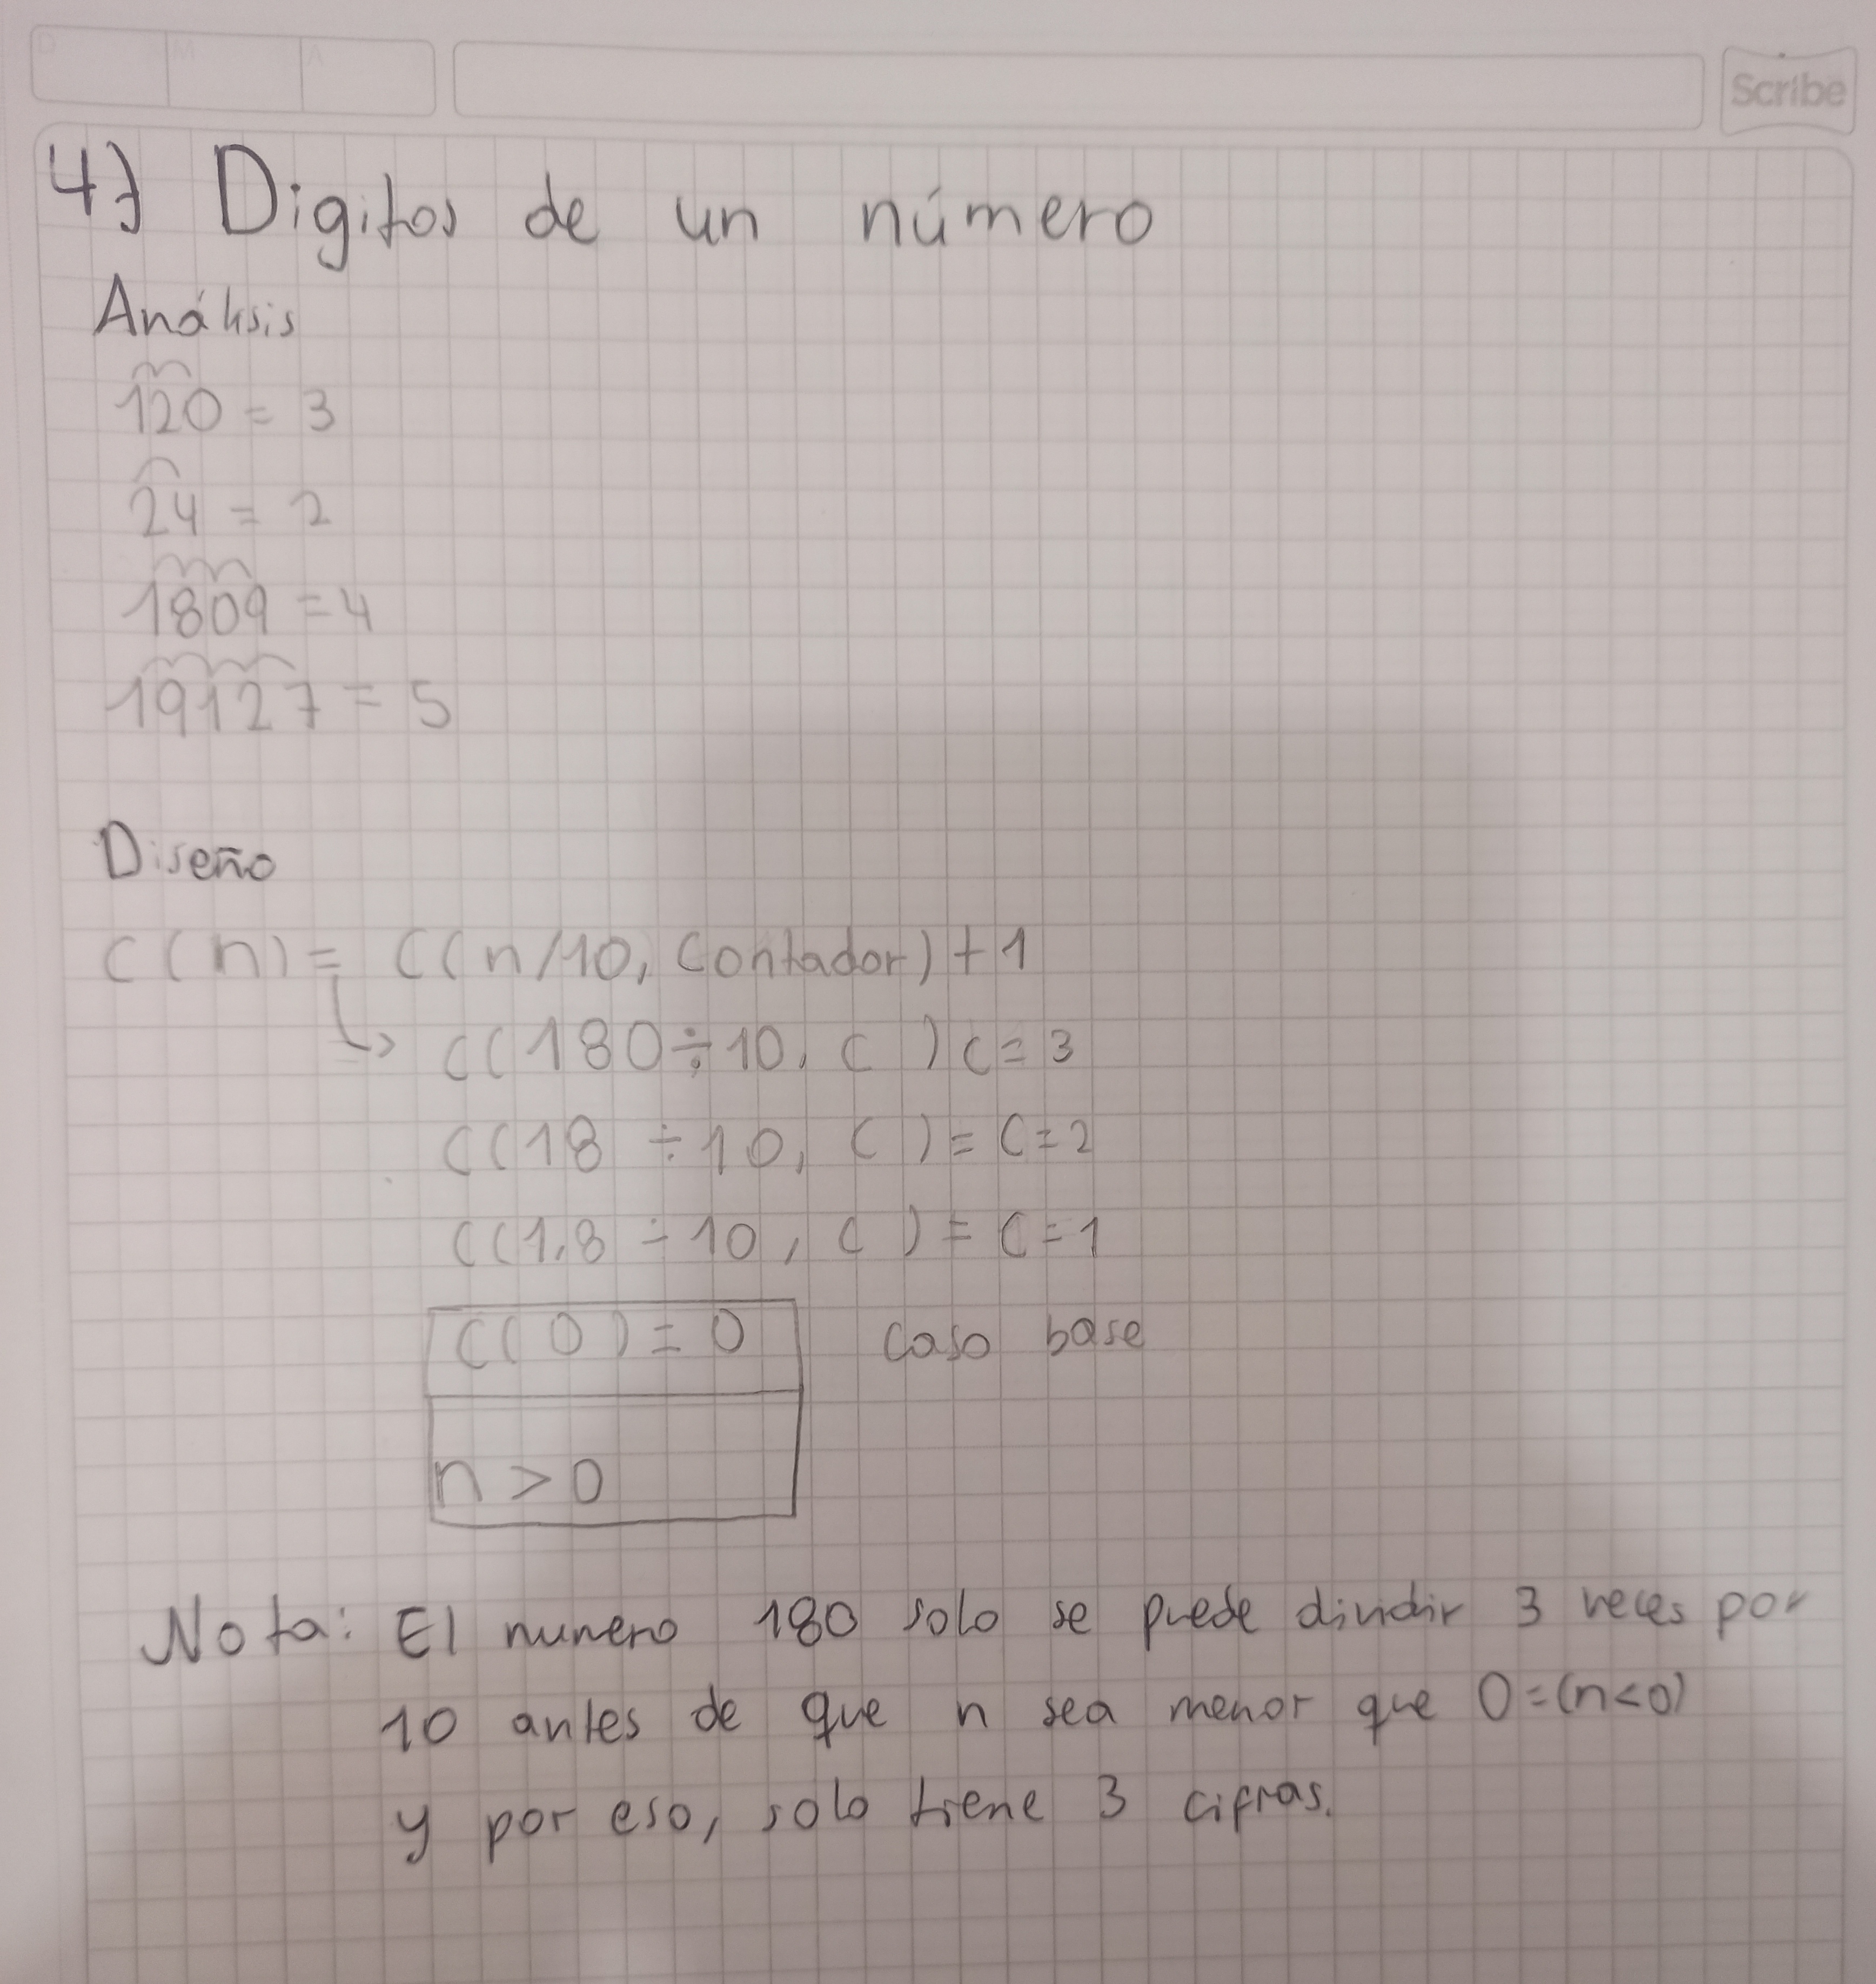 D M A
Scribe
4) Digitos de un número
Análisis
120 = 3
24 = 2
1809 = 4
19127 = 5
Diseño
C(n) = C(n/10, Contador) + 1
C(180÷10, C ) C = 3
C(18 ÷ 10, C ) = C = 2
C(1,8 ÷ 10, C ) = C = 1
C(0) = 0 caso base
n > 0
Nota: El numero 180 solo se puede dividir 3 veces por
10 antes de que n sea menor que 0 = (n<0)
y por eso, solo tiene 3 cifras.